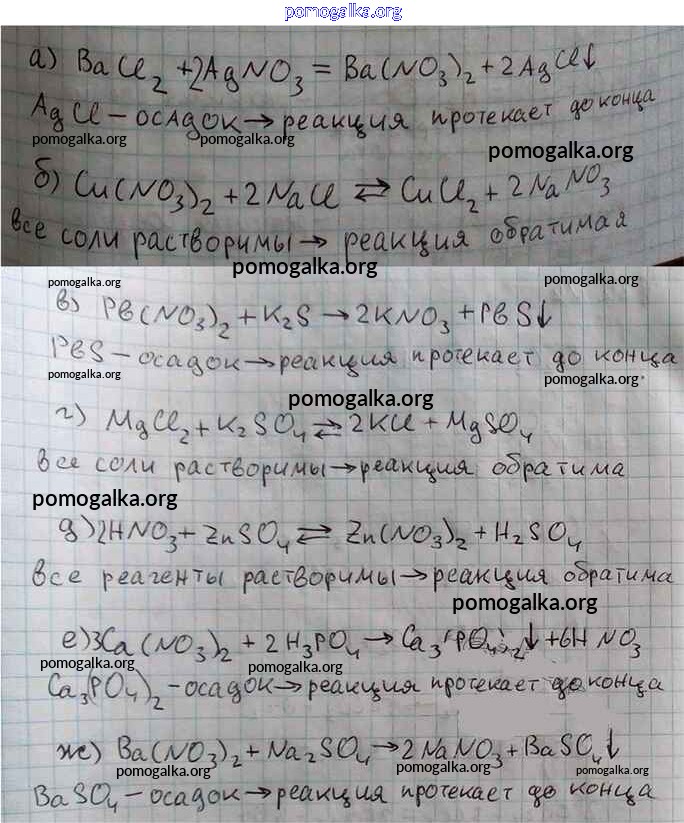 pomogalka.org
а) BaCl₂ + 2AgNO₃ = Ba(NO₃)₂ + 2AgCl↓
AgCl – осадок → реакция протекает до конца
pomogalka.org pomogalka.org
pomogalka.org
б) Cu(NO₃)₂ + 2NaCl ⇄ CuCl₂ + 2NaNO₃
все соли растворимы → реакция обратимая
pomogalka.org
pomogalka.org pomogalka.org
в) Pb(NO₃)₂ + K₂S → 2KNO₃ + PbS↓
PbS – осадок → реакция протекает до конца
pomogalka.org pomogalka.org
pomogalka.org
г) MgCl₂ + K₂SO₄ ⇄ 2KCl + MgSO₄
все соли растворимы → реакция обратима
pomogalka.org
д) 2HNO₃ + ZnSO₄ ⇄ Zn(NO₃)₂ + H₂SO₄
все реагенты растворимы → реакция обратима
pomogalka.org
е) 3Ca(NO₃)₂ + 2H₃PO₄ → Ca₃(PO₄)₂↓ + 6HNO₃
pomogalka.org pomogalka.org
Ca₃(PO₄)₂ – осадок → реакция протекает до конца
ж) Ba(NO₃)₂ + Na₂SO₄ → 2NaNO₃ + BaSO₄↓
pomogalka.org pomogalka.org
BaSO₄ – осадок → реакция протекает до конца